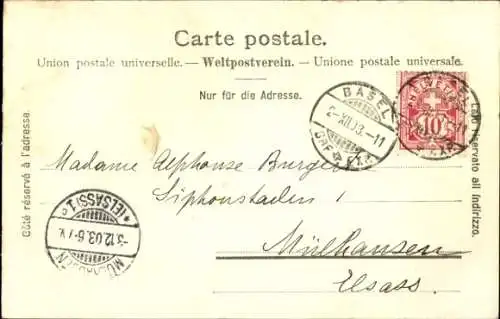 Carte postale.
Union postale universelle. — Weltpostverein. — Unione postale universale.
Nur für die Adresse.
Côté réservé à l'adresse.
Lato riservato all indirizzo.
BASEL
2-XII.03.-11
BRF. EXP.
HELVETIA
10
Madame Alphonse Burger
Siphonstaden 1
Mülhausen
Elsass.
MÜLHAUSEN
3.12.03. 6-7 V.
*(ELSASS) 1c